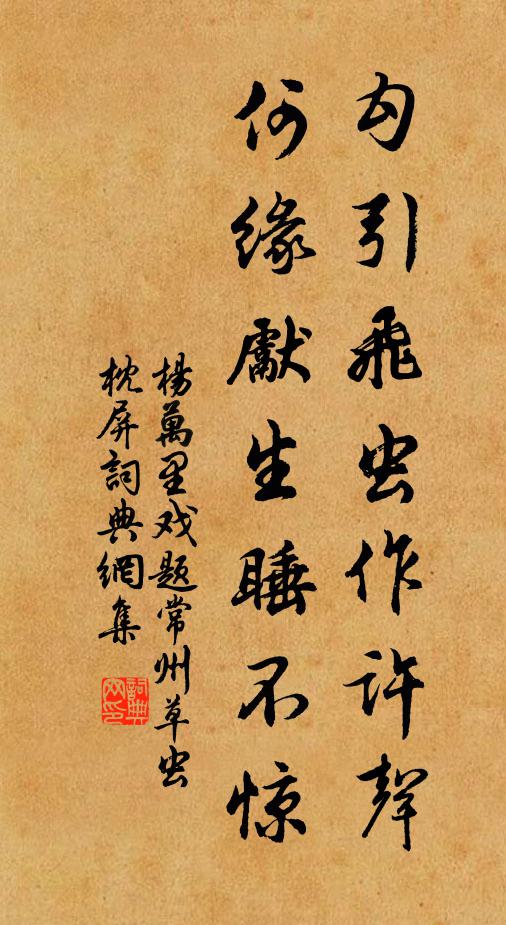 勾引飛虫作許聲
何緣獻生睡不惊
楊萬里戏题常州草虫
枕屏詞典網集
詞典网印